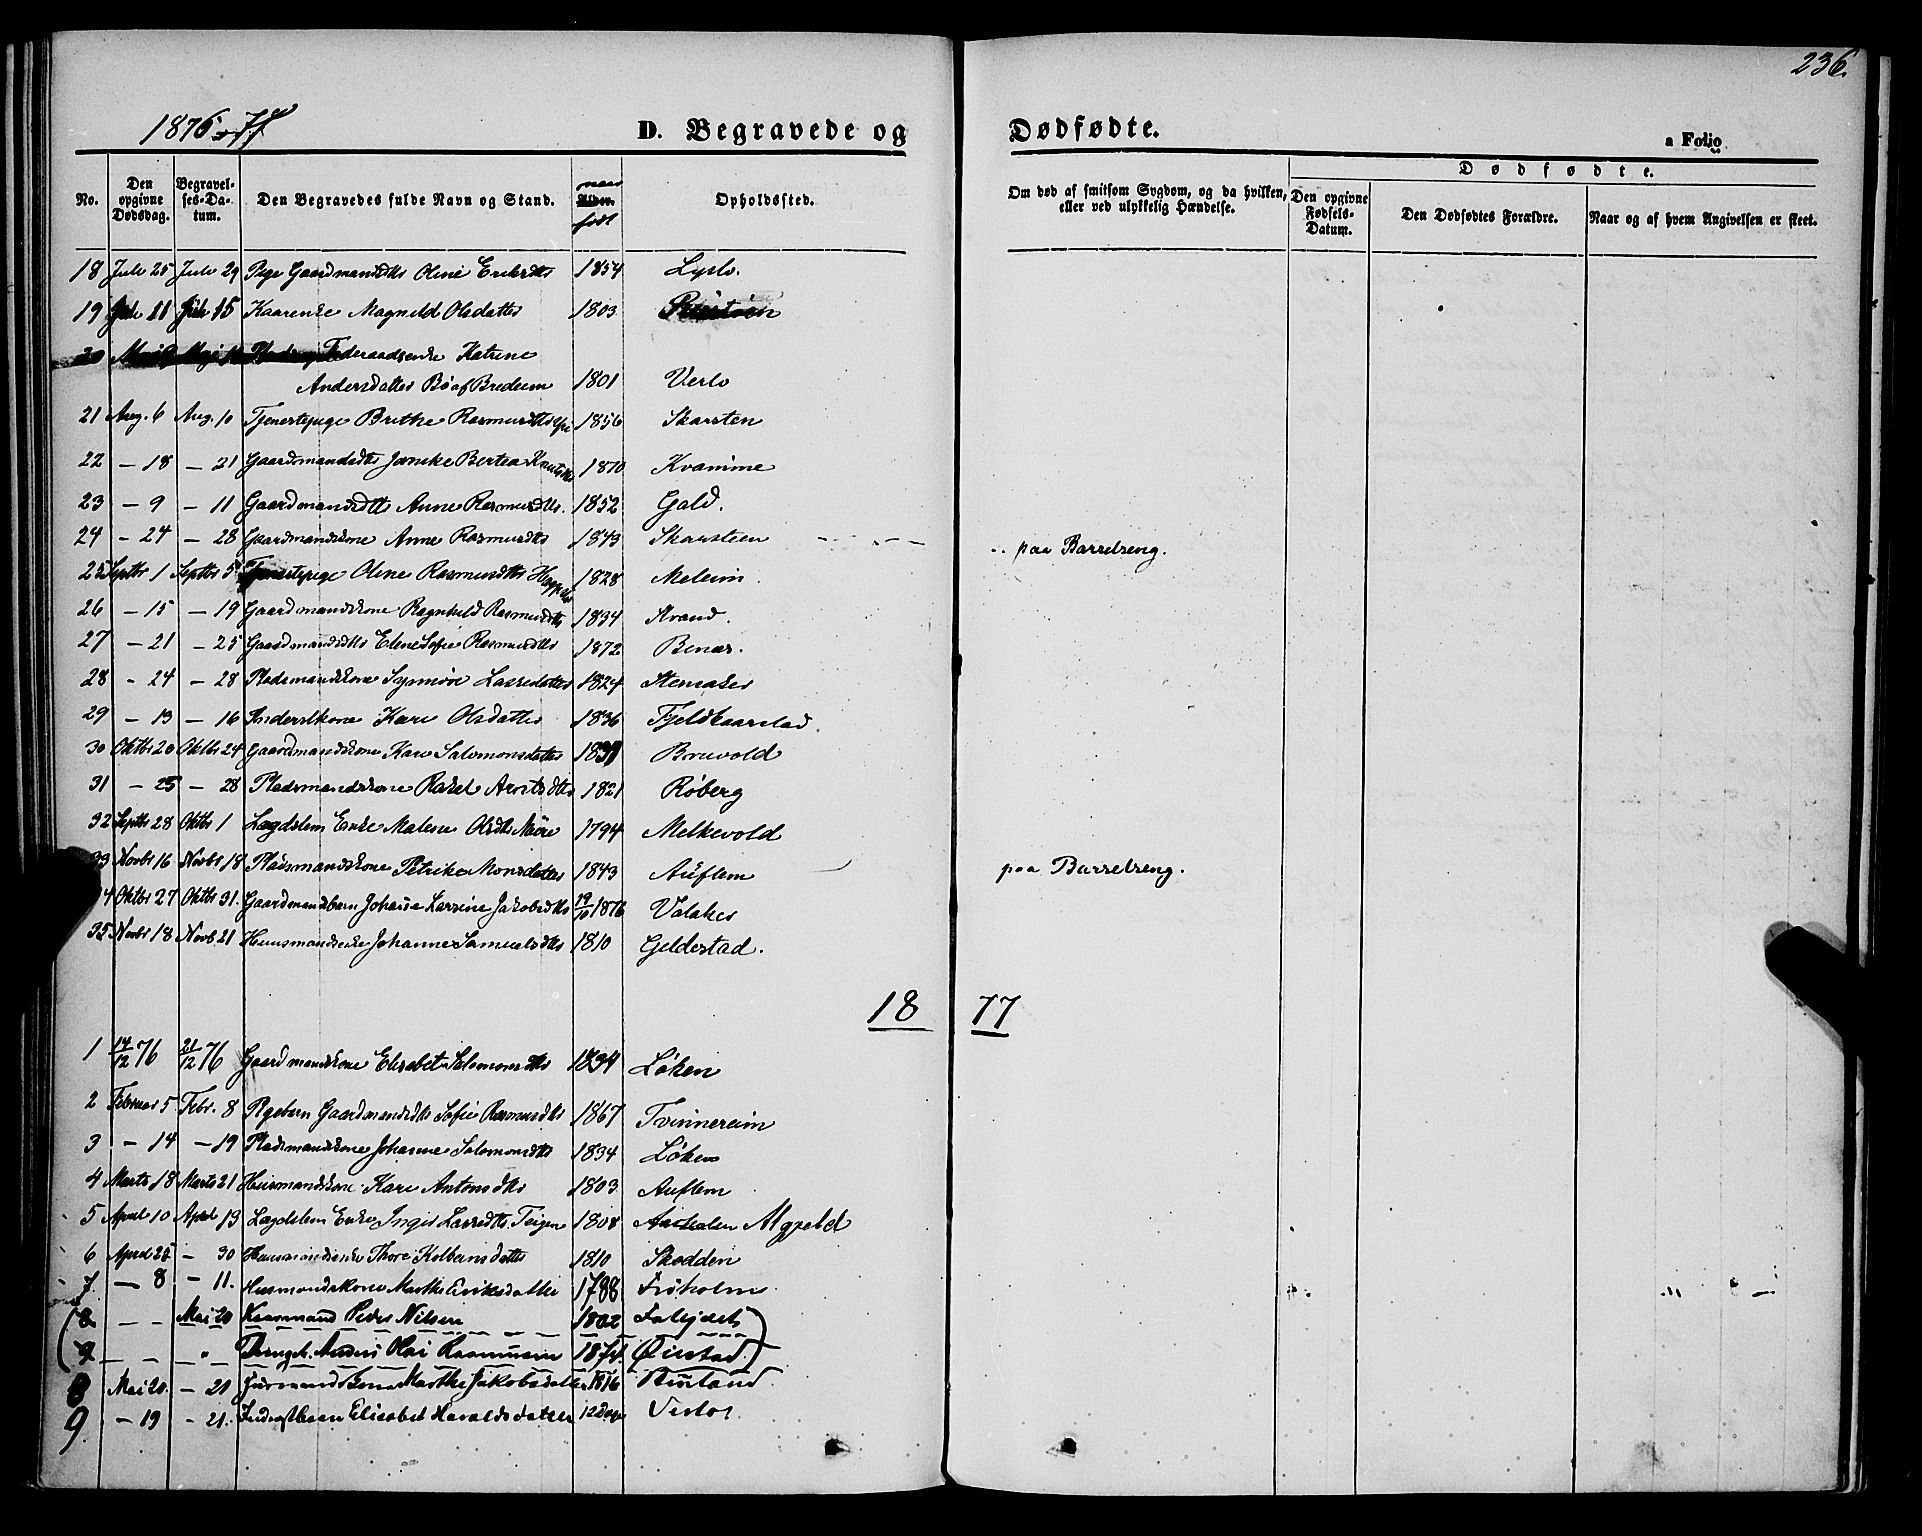 236.
1876-77
D. Begravede og Dødfødte.
a Folio
No.
Den opgivne Dødsdag.
Begravelses-Datum.
Den Begravedes fulde Navn og Stand.
naar Alder. født
Opholdssted.
Om død af smitsom Sygdom, og da hvilken, eller ved ulykkelig Hændelse.
Dødfødte.
Den opgivne Fødsels-Datum.
Den Dødfødtes Forældre.
Naar og af hvem Angivelsen er skeet.
18 Juli 25 Juli 29 Pige Gaardmandsdtr Oline Eriksdtr 1854 Lyslo.
19 11 15 Kaarenke Magnild Olsdatter 1803
20 Føderaadsenke Katrine
Andersdatter Bø af Bredeim 1801 Verlo
21 Aug. 6 Aug. 10 Tjenestepige Brithe Rasmusdtr 1856 Skarsten
22 — 18 — 21 Gaardmandsdtr Janike Bertea 1870 Kvamme
23 — 9 — 11 Gaardmandsdtr Anne Rasmusdtr. 1852 Gald.
24 — 24 — 28 Gaardmandskone Anne Rasmusdtr 1843 Skarsteen paa Barselseng.
25 Septbr 1 Septbr 5 Tjenestepige Oline Rasmusdtr 1828 Meleim.
26 — 15 — 19 Gaardmandskone Ragnhild Rasmusdtr 1834 Strand.
27 — 21 — 25 Gaardmandsdtr Elene Sofie Rasmusdtr 1872 Benes.
28 — 24 — 28 Pladsmandskone Synnøve Lassedatter 1824 Stenaker
29 — 13 — 16 Inderstkone Kari Olsdatter 1836 Fjeldkaarstad.
30 Oktbr 20 Oktbr 24 Gaardmandskone Kari Salomonsdatter Bruvold
31 — 25 — 28 Pladsmandskone Rakel Arntsdtr 1821 Røberg
32 Septbr 28 Oktbr 1 Lægdslem Enke Malene Olsdtr 1794 Melkevold
33 Novbr 16 Novbr 18 Pladsmandskone Petrike Monsdatter 1843 Auflem paa Barselseng.
34 Oktbr 27 Oktbr 31. Gaardmandsbarn Johanne Larsine Jakobsdtr 19/10 1876 Valaker
35 Novbr 18 Novb. 21 Huusmandsenke Johanne Samuelsdtr 1810 Geldestad.
1877
1 14/12 76 21/12 76 Gaardmandskone Elisabet Salomonsdtr Løken
2 Februar 5 Febr. 8 Pigebarn Gaardmandsdtr Sofie Rasmusdtr 1867 Tvinnereim
3 — 14 — 19 Pladsmandskone Johanne Salomonsdtr 1834 Løken
4 Marts 18 Marts 21 Huusmandskone Kari Antonsdtr 1803 Auflem
5 April 10 April 13 Lægdslem Enke Inger Lassedtr. Teigen 1808 Aaeholen Algjeld
6 April 25 — 30 Huusmandsenke Thore Kolbensdatter 1810 Skodden
7. — 8 — 11. Husmandskone Marthe Eriksdatter 1788 Frøholm
(8 — — Mai 20 Kaarmand Peder Nilsen 1802 Faleidet)
(9 — — " Drengeb. Anders Olai Rasmussen 1874. Øirstad)
8 Mai 20. — 21 Marthe Jakobsdatter
9. — 19 — 21. Inderstbarn Elisabet Haraldsdatter 12 Dage